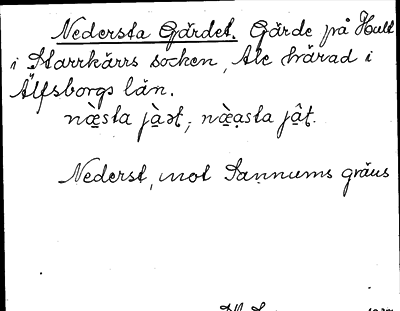 Nedersta Gärdet. Gärde på Hult
i Starrkärrs socken, Ale härad i
Älfsborgs län.
næ̀sta jàət; næ̀asta jât.
Nederst, mot Sannums gräns